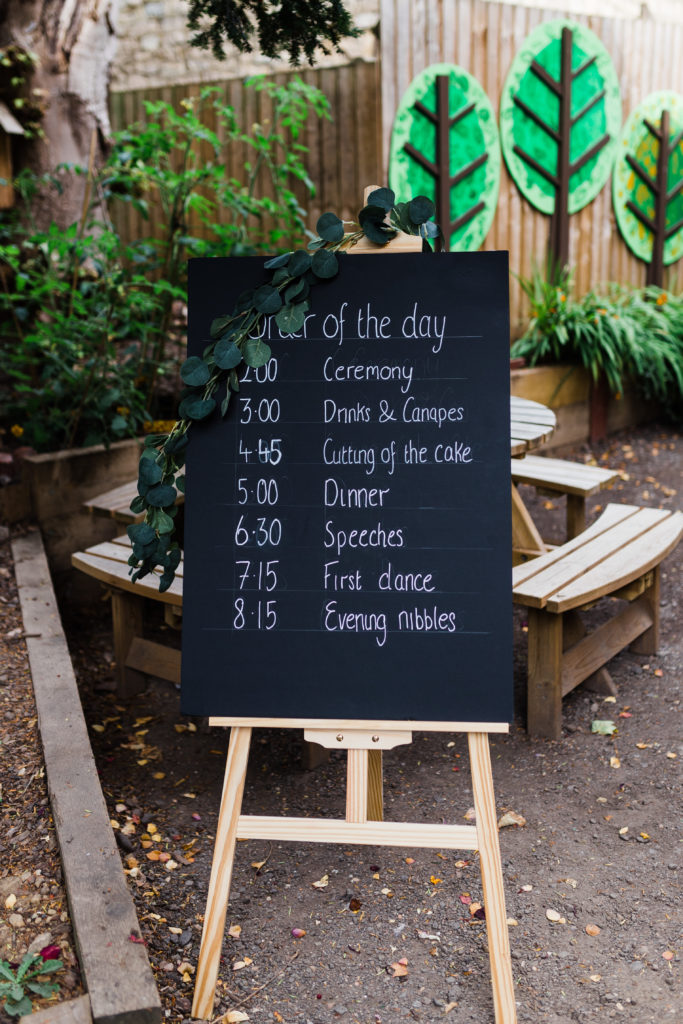 Order of the day
2.00 Ceremony
3.00 Drinks & Canapes
4.45 Cutting of the cake
5.00 Dinner
6.30 Speeches
7.15 First dance
8.15 Evening nibbles